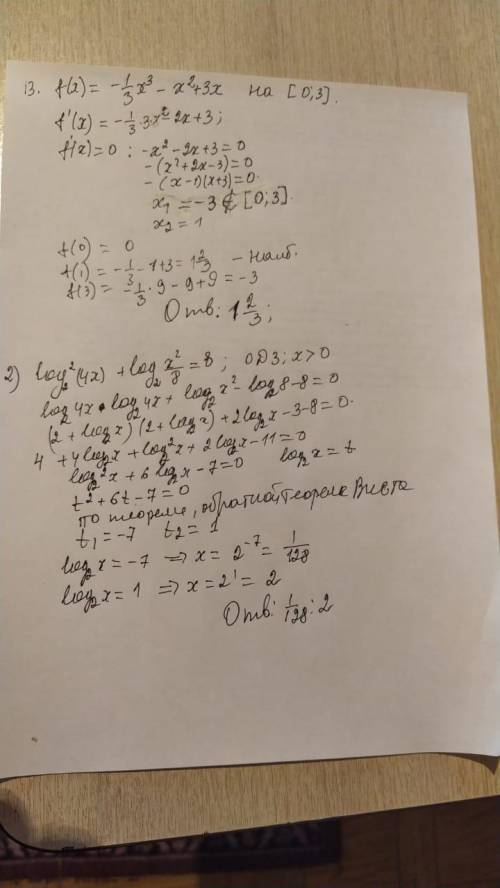 13. f(x) = -1/3 x³ - x² + 3x на [0;3].
f'(x) = -1/3 · 3 · x² - 2x + 3;
f'(x) = 0 : -x² - 2x + 3 = 0
-(x² + 2x - 3) = 0
-(x - 1)(x + 3) = 0.
x₁ = -3 ∉ [0;3].
x₂ = 1
f(0) = 0
f(1) = -1/3 - 1 + 3 = 1 2/3 - наиб.
f(3) = -1/3 · 9 - 9 + 9 = -3
Отв: 1 2/3;
2) log₂²(4x) + log₂ x²/8 = 8; ОДЗ; x > 0
log₂4x · log₂4x + log₂x² - log₂8 - 8 = 0
(2 + log₂x)(2 + log₂x) + 2log₂x - 3 - 8 = 0.
4 + 4log₂x + log₂²x + 2log₂x - 11 = 0
log₂²x + 6log₂x - 7 = 0 log₂x = t
t² + 6t - 7 = 0
по теореме, обратной теореме Виета
t₁ = -7 t₂ = 1
log₂x = -7 ⇒ x = 2⁻⁷ = 1/128
log₂x = 1 ⇒ x = 2¹ = 2
Отв: 1/128; 2